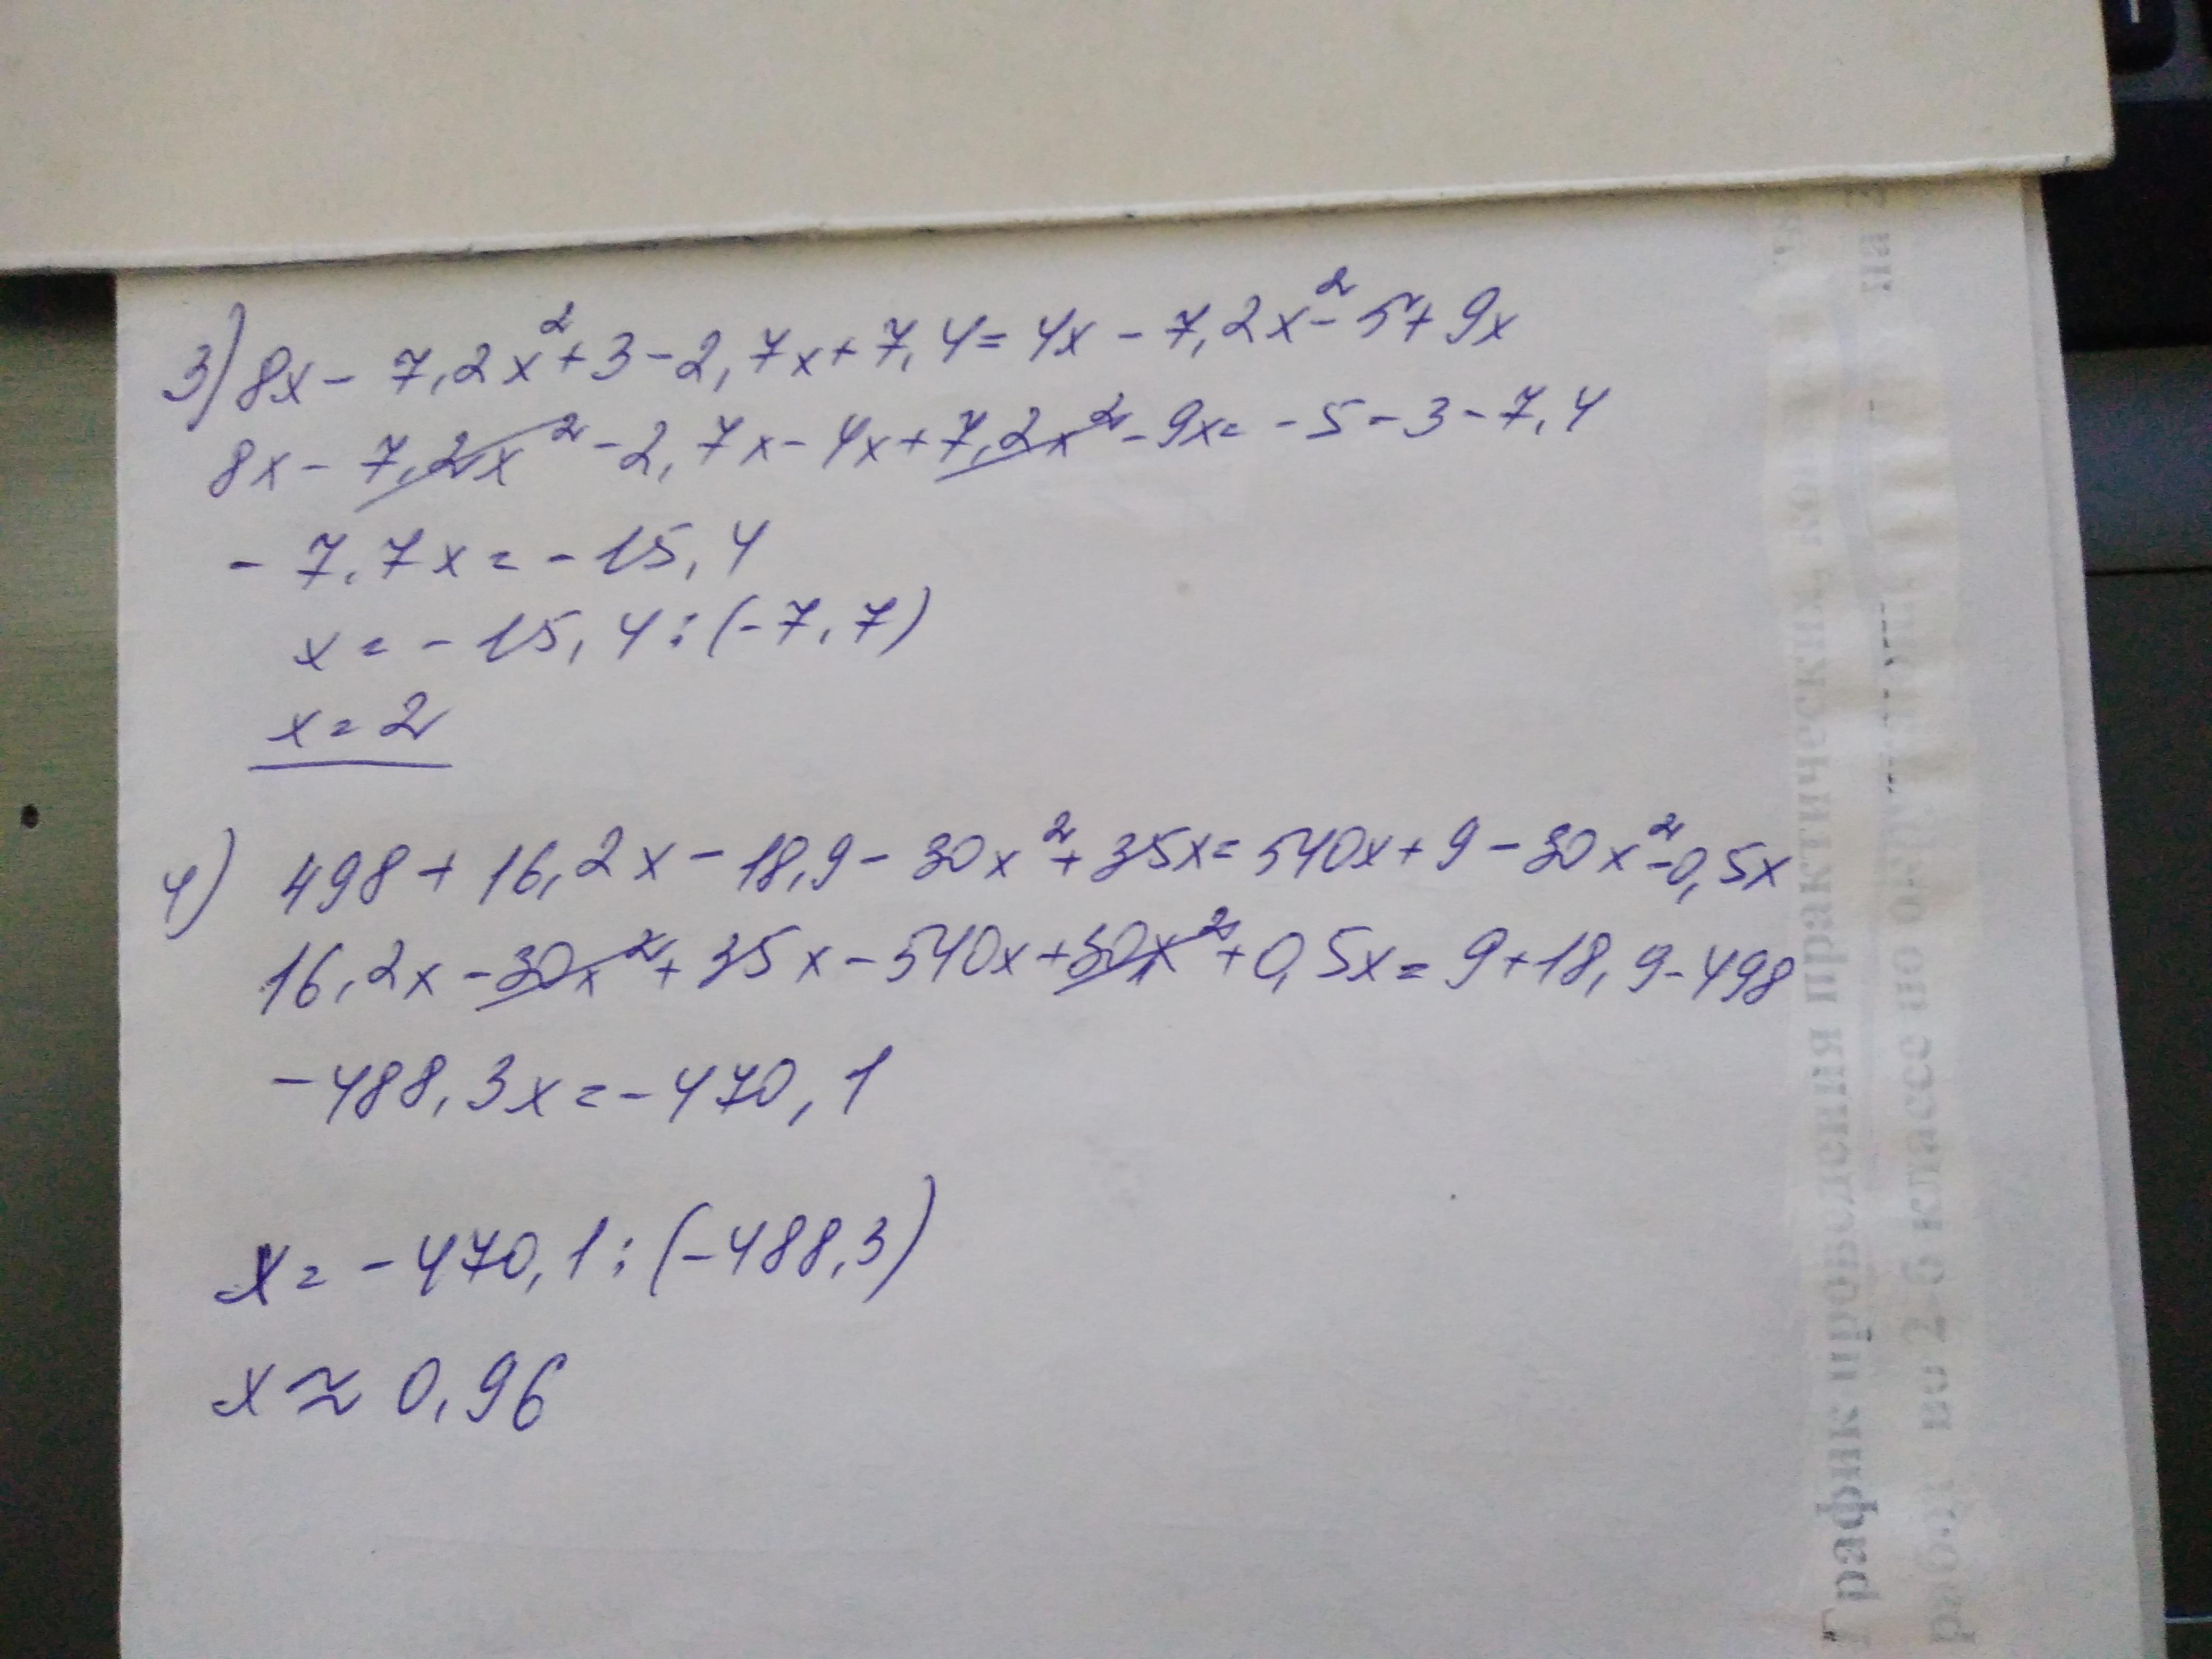 3) 8x - 7,2x² + 3 - 2,7x + 7,4 = 4x - 7,2x² - 5 + 9x
8x - 7,2x² - 2,7x - 4x + 7,2x² - 9x = -5 - 3 - 7,4
- 7,7x = - 15,4
x = - 15,4 : (-7,7)
x = 2
4) 498 + 16,2x - 18,9 - 30x² + 35x = 540x + 9 - 30x² - 0,5x
16,2x - 30x² + 35x - 540x + 30x² + 0,5x = 9 + 18,9 - 498
- 488,3x = - 470,1
x = - 470,1 : (-488,3)
x ≈ 0,96
График проведения практических